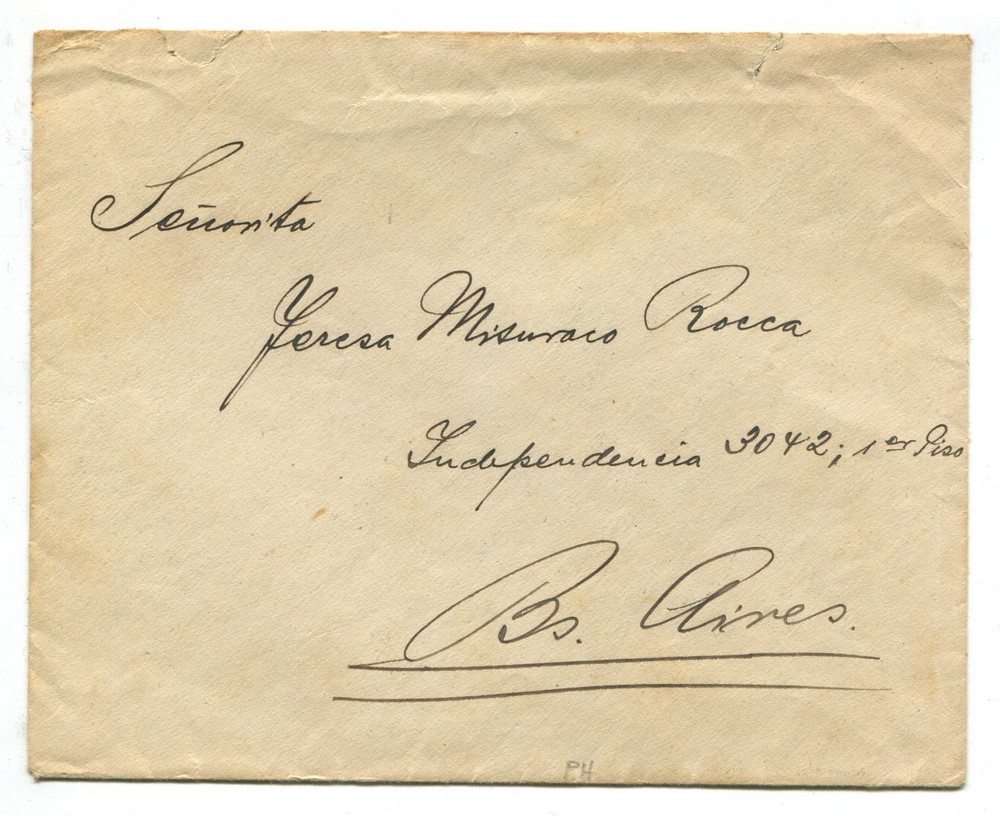 Señorita
Teresa Misuraco Rocca
Independencia 3042; 1er Piso
Bs. Aires.
PH